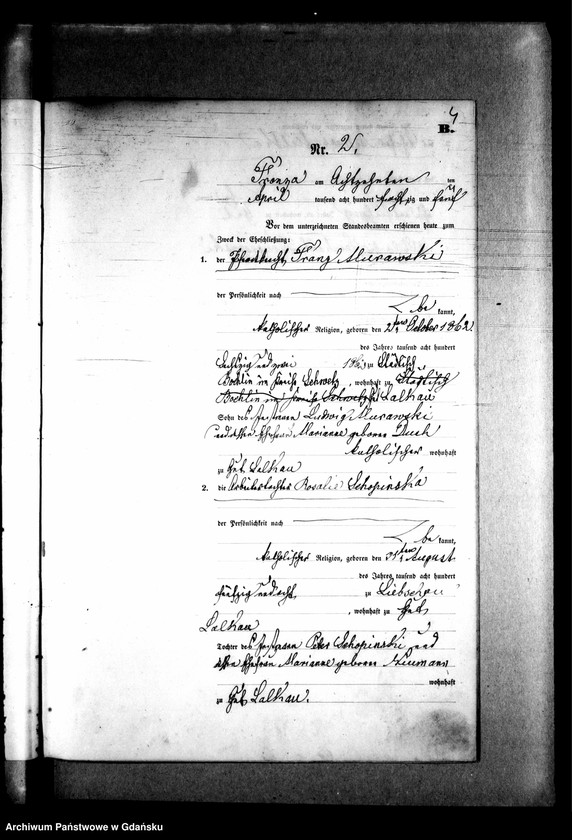 4
B.
Nr. 2.
Fronza am Achtzehnten ten
April tausend acht hundert achtzig und fünf
Vor dem unterzeichneten Standesbeamten erschienen heute zum
Zweck der Eheschließung:
1. der Pferdeknecht Franz Murawski
der Persönlichkeit nach
be
kannt,
katholischer Religion, geboren den 2ten October 1862
des Jahres tausend acht hundert
sechzig und zwei zu
Bochlin im Kreise Schwetz, wohnhaft zu
Bochlin im Kreise Schwetz Gut Lalkau
Sohn des Ludwig Murawski
und dessen Ehefrau Marianne geboren
katholischer wohnhaft
zu Gut Lalkau
2. die Arbeitertochter Rosalie Schopinska
der Persönlichkeit nach
be
kannt,
katholischer Religion, geboren den 31ten August
des Jahres tausend acht hundert
fünfzig und acht zu Liebschau
, wohnhaft zu Gut
Lalkau
Tochter des Peter Schopinski und
Ehefrau Marianne geboren Neumann
wohnhaft
zu Gut Lalkau.
Archiwum Państwowe w Gdańsku